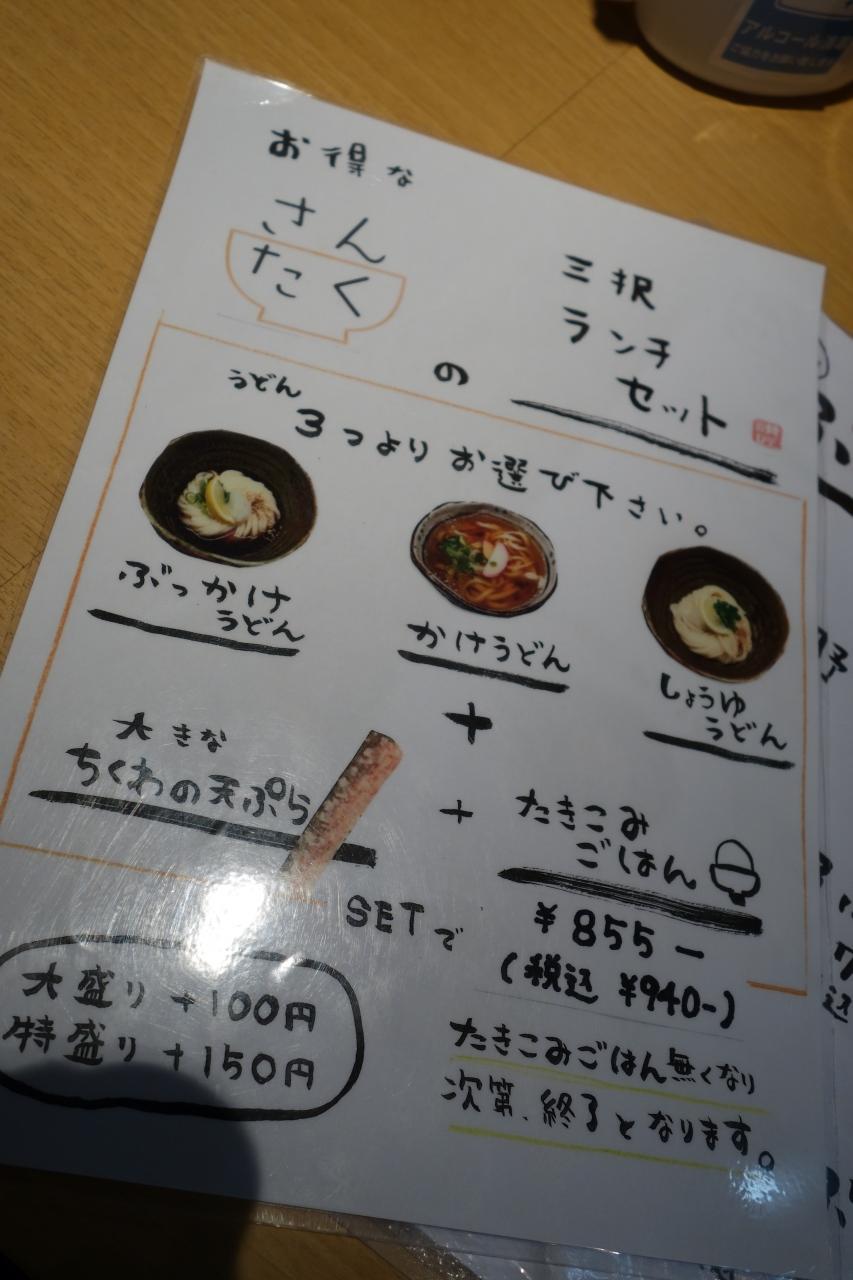 アルコール消毒
お得な
さん
たく
の
三択
ランチ
セット
うどん
3つよりお選び下さい。
ぶっかけ
うどん
かけうどん
しょうゆ
うどん
+
大きな
ちくわの天ぷら
+
たきこみ
ごはん
SETで
¥855ー
(税込 ¥940-)
大盛り +100円
特盛り +150円
たきこみごはん無くなり
次第、終了となります。